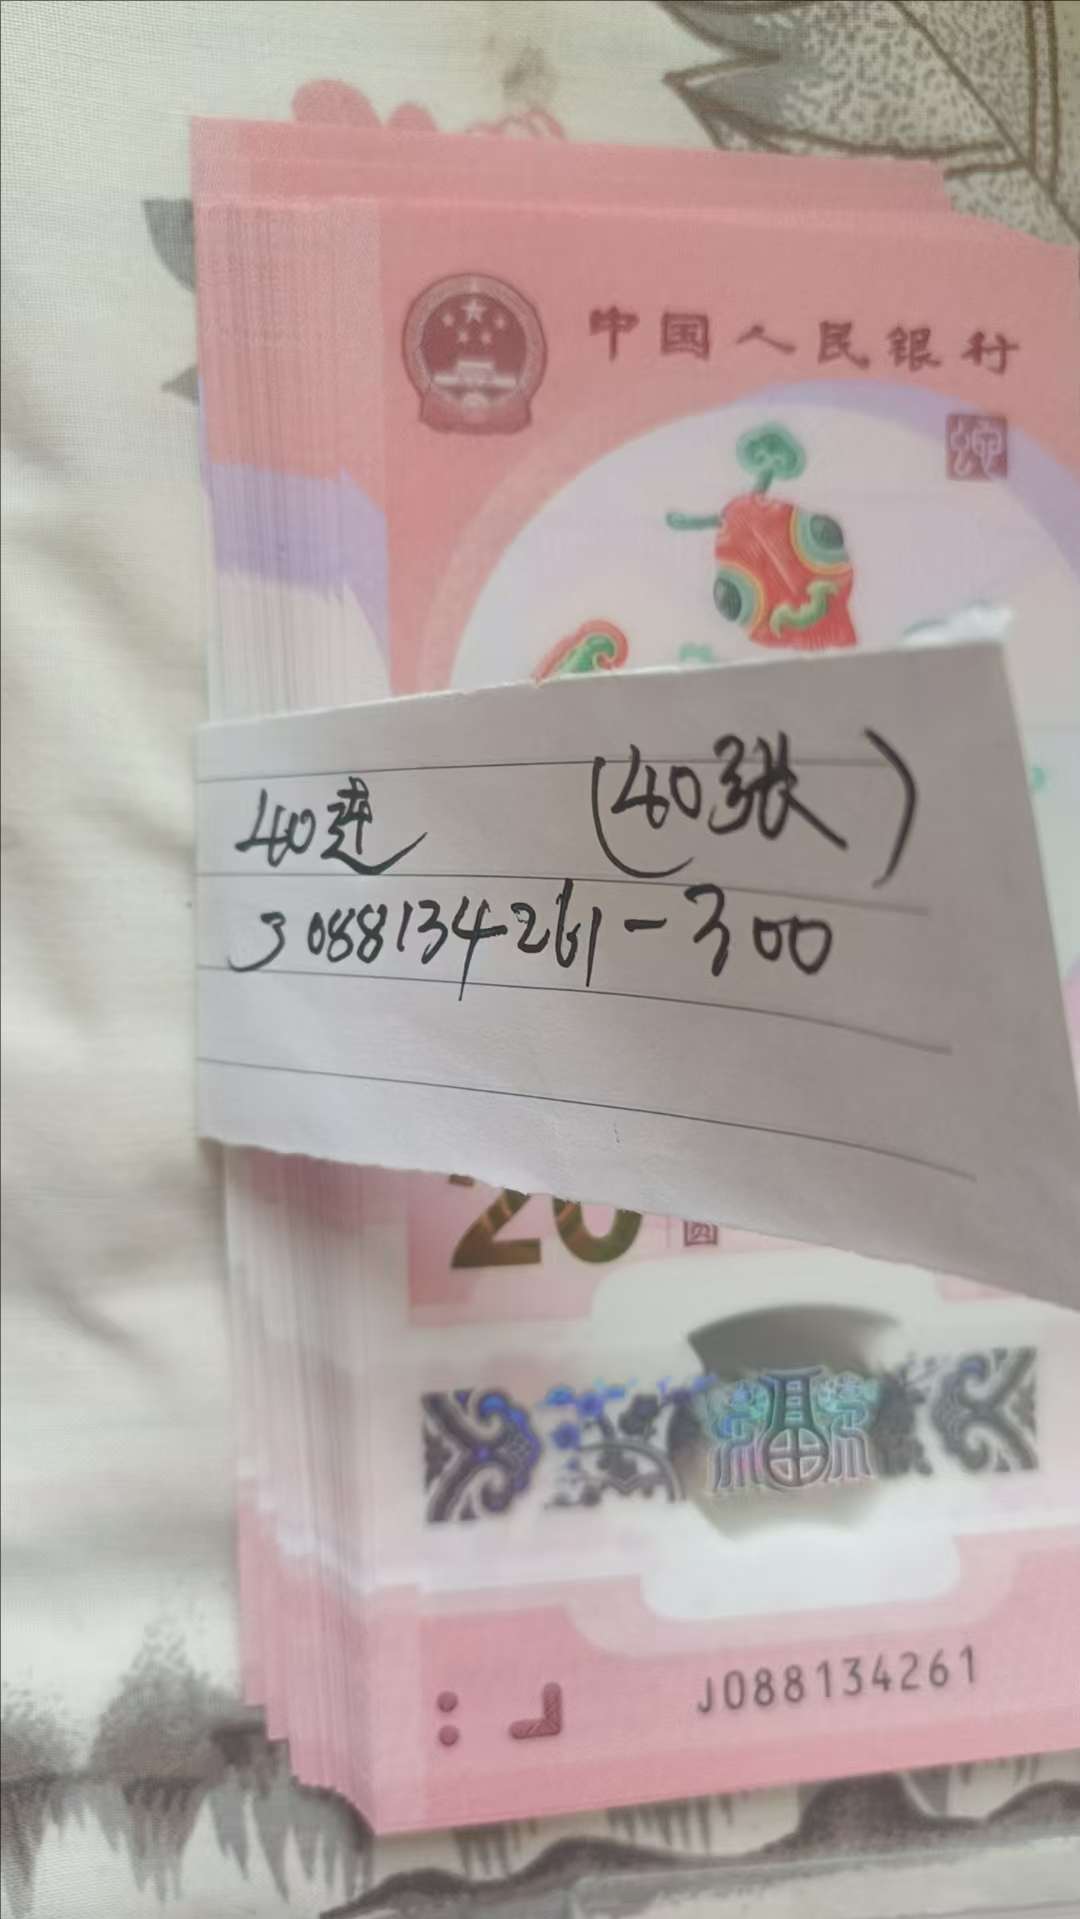 中国人民银行
蛇
40连 (40张)
J088134261-300
20
J088134261